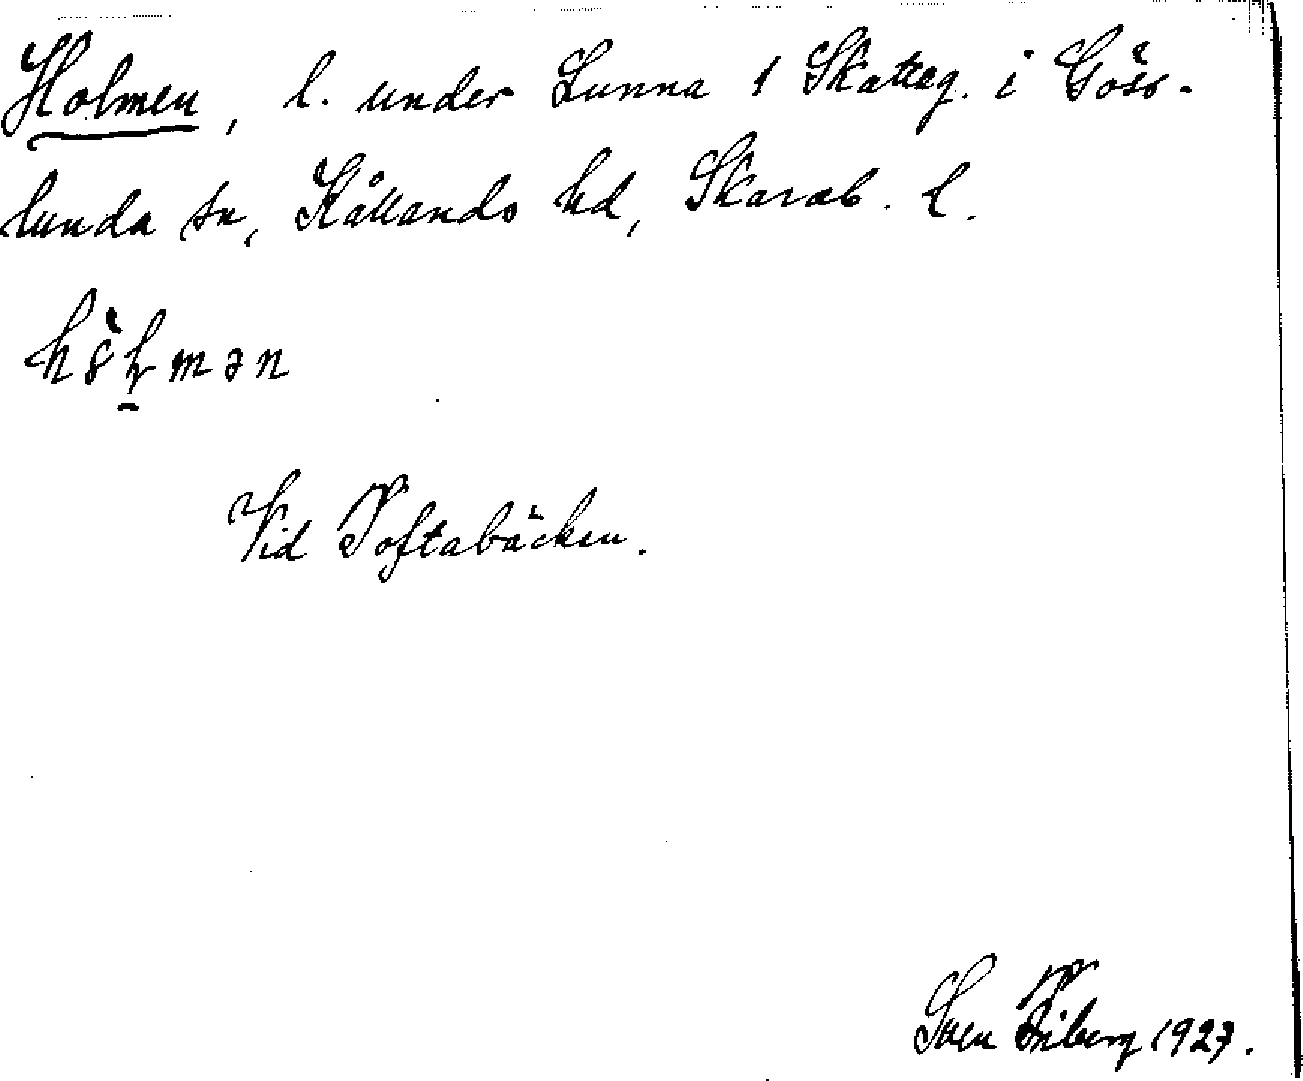 Holmen, l. under Lunna 1 Skatteg. i Göss-
lunda sn, Kållands hd, Skarab. l.
Vid Toftabäcken.
Sven Friberg 1927.